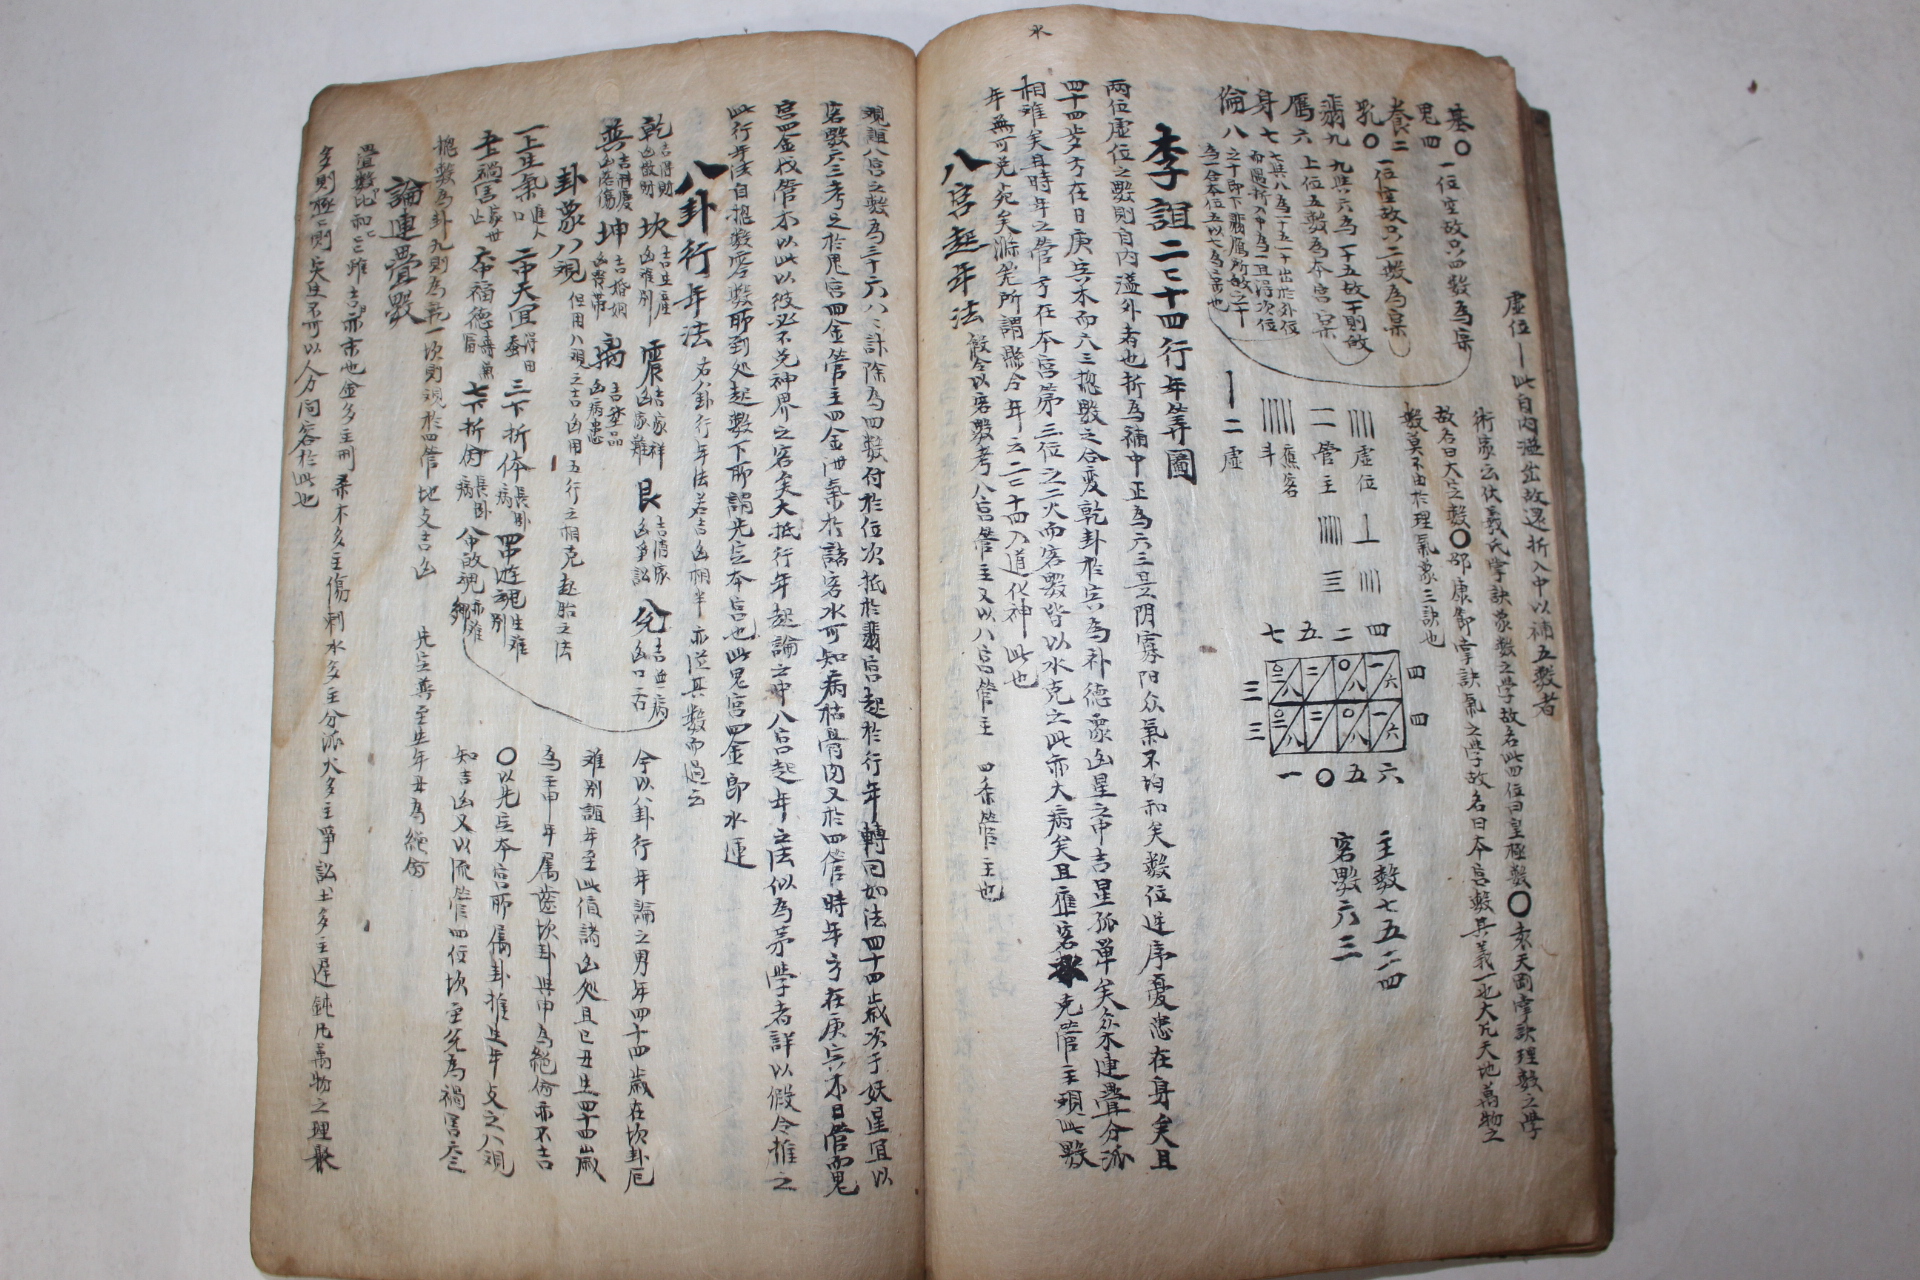 水
虛位 一 此自內溢出故還折入中以補五數者
墓〇 一位空故只四數為宗
鬼四
養二 一位空故只二數為宗
乳〇
翡九 九與六為一十五故下則啟
鴈六 上位五數為本宮宗
身七 七與八為一十五一十出於外位
而還折入中為一且得次位
倫八 之十卽下翡鴈所故之十
為一合本位五以七為宗也
術家云伏羲氏掌訣象數之學故名此四位曰皇極數〇袁天罡掌訣理數之學
故名曰大定數〇邵康節掌訣氣之學故名曰本宮數其義一也大凡天地萬物之
數莫不由於理氣象三訣也
虛位
管主
應客
斗
二虛
七五二四
四
四
三
三
一〇五六
主數七五二四
客數六三
李誼二二十四行年筭圖
兩位虛位之數則自內溢外者也折為補中正為六三是阴寡阳众氣不均和矣數位連序憂患在身矣且
四十四岁方在日庚寅木而六三摠數之合变乾卦於寅為补德象凶星之中吉星孤單矣众木連疊分孤
相难矣且時年之管方在本宮第三位之二火而客數皆以水克之此亦大病矣且應客水克管主頭此數
年無可免死矣游筦所謂縣令年云二二十四入道化神此也
八宮起年法 假令以客數考八宮管主又以八宮管主 四柰管主也
觀誼八宮之數為三十六八八計除為四數付於位次抵於翡宮起於行年轉回如法四十四歲次于妖星宜以
客數六三考之於鬼宮四金管主四金泄氣於諸客水可知病枯骨肉又於四管時年方在庚寅木日管而鬼
宮四金伐管木以此以彼必不免神界之客矣大抵行年起論之中八宮起年之法似為茅學者詳以假令推之
此行年法自摠數客數所到処起數下所謂先定本宮也此鬼宮四金卽水運
八卦行年法 右八卦行年法若吉凶相半亦從其數而過云
乾 吉得財 凶散財 坎 吉生產 凶难別 震 吉家祥 凶家難 艮 吉清家 凶爭訟 兌 吉無病 凶口舌
巽 吉科慶 凶落傷 坤 吉婚姻 凶喪帶 离 吉登品 凶病患
卦象八規 但用八規之吉凶用五行之相克起胎之法
一上生氣 進人口 二中天宜 得田蚕 三下折体 長臥病 四中遊魂 生难別
五上禍害 六中福德 七下折伤 長臥病 八中故魂 亦难鄉
摠數為卦九則為乾一坎則規於四管地支吉凶 先定尊至生年丑為絶命
今以八卦行年論之男年四十四歲在坎卦厄
难別誼年至此值諸凶処且己丑生四十四歲
為壬申年属应坎卦與申為絶命亦不吉
〇以先定本宮所属卦推生年支之八規
知吉凶又以流管四位坎至兌為禍害云
論連疊數
疊數比和云雖吉亦末也金多主刑 柔木多主傷刺水多主分派火多主爭訟土多主遲鈍凡萬物之理聚
多則極極則夬生不可以人力同容於此也